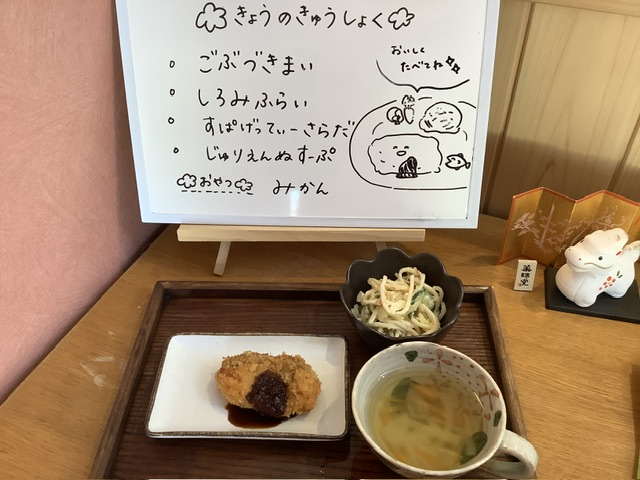 きょうのきゅうしょく
ごぶづきまい
しろみふらい
すぱげってぃーさらだ
じゅりえんぬすーぷ
おやつ みかん
おいしく
たべてね